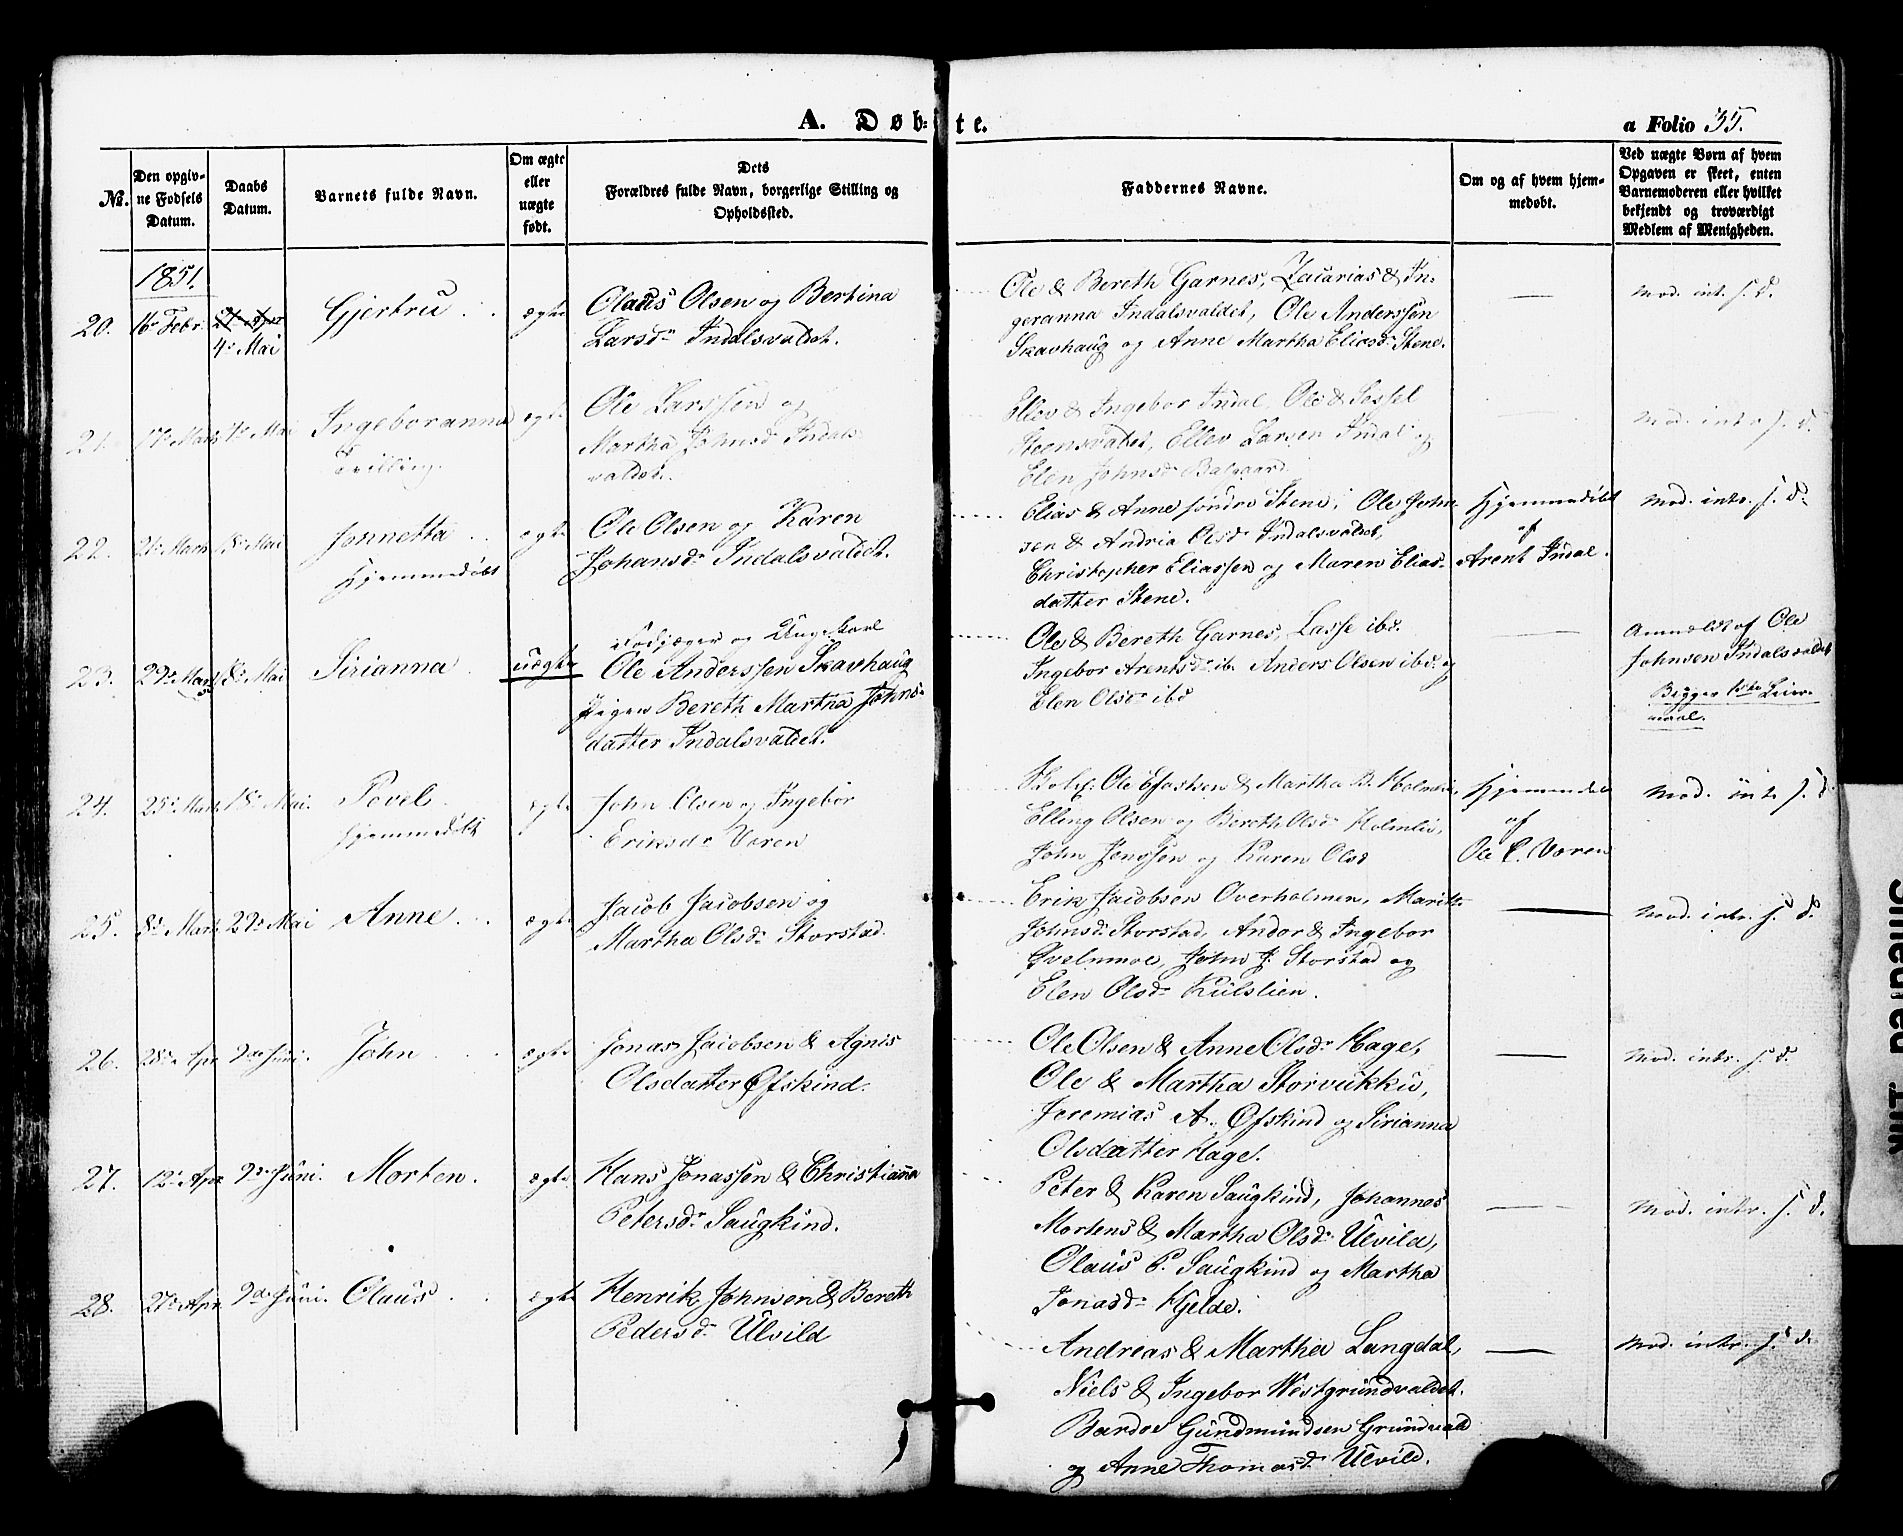 A. Døbte.
a Folio 35.
No.
Den opgiv-
ne Fødsels
Datum.
Daabs
Datum.
Barnets fulde Navn.
Om ægte
eller
uægte
født.
Dets
Forældres fulde Navn, borgerlige Stilling og
Opholdssted.
Faddernes Navne.
Om og af hvem hjem-
medøbt.
Ved uægte Børn af hvem
Opgaven er skeet, enten
Barnemoderen eller hvilket
bekjendt og troværdigt
Medlem af Menigheden.
1851.
20. 16de Febr. 4de Mai
Gjertru
ægte
Olaus Olsen og Bertina
Larsdr Indalsvaldet.
Ole & Bereth Garnes, Zacarias & In-
geranna Indalsvaldet, Ole Anderssen
Skavhaug og Anne Martha Eliasdr Stene.
—
Mod. int. s. d.
21. 17de Marts Mai
Ingeboranna
Tvilling.
ægte
Ole Larssen og
Martha Johnsdr Indals-
valdet.
Ellev & Ingebor Indal, Ole & Sessel
Steensvaldet, Ellev Larsen Indal og
Elen Johnsdr Balgaard.
Mod. intr. s. d.
22. 21de Marts 18de Mai
Jonnetta
Hjemmedøbt
ægte
Ole Olsen og Karen
Johansdr Indalsvaldet.
Elias & Anne søndre Stene, Ole John-
sen & Andria Olsdr Indalsvaldet,
Christopher Eliassen og Maren Elias-
datter Stene.
Hjemmedøbt
af
Arent Indal.
Mod. intr. s. d.
23. 29de Marts 18de Mai
Sirianna
uægte
Fodjæger og Ungekarl
Ole Anderssen Skavhaug
Pigen Bereth Martha Johns-
datter Indalsvaldet.
Ole & Bereth Garnes, Lasse ibd.
Ingebor Arentsdr ib. Anders Olsen ibd. og
Elen Olsdr ibd
—
Anmeldt af Ole
Johnsen Indalsvaldet
Begges 1ste Leier-
maal.
24. 25de Marts 18de Mai.
Povel
hjemmedøbt
ægte
John Olsen og Ingebor
Eriksdr Voren
Ole & Martha B. Holmlie,
Elling Olsen og Bereth Olsdr Holmlie,
John Jenssen og Karen Olsd
Hjemmedøbt
af
Ole Voren
Mod. int. s. d.
25. 8de Marts 29de Mai
Anne
ægte
Jacob Jacobsen og
Martha Olsdr Storstad.
Erik Jacobsen Overholmen, Marit
Johnsdr Storstad, Andor & Ingebor
Qvelmoe, John J. Storstad og
Elen Olsdr Kulslien.
—
Mod. intr. s. d.
26. 28de Apr 9de Juni.
John
ægte
Jonas Jacobsen & Agnis
Olsdatter Øfskind.
Ole Olsen & Anne Olsdr Hage,
Ole & Martha Storvukku,
Jeremias A. Øfskind og Sirianna
Olsdatter Hage.
—
Mod. intr. s. d.
27. 12de Apr 9de Juni.
Morten.
ægte
Hans Jonassen & Christianna
Petersdr Saugkind.
Peter & Karen Saugkind, Johannes
Mortens & Martha Olsdr Ulvild,
Olaus P. Saugkind og Martha
Jonasdr Hjelde.
—
Mod. intr. s. d.
28. 27de Apr 9de Juni.
Olaus
ægte
Henrik Johnsen & Bereth
Pedersdr Ulvild
Andreas & Martha Langdal,
Niels & Ingebor Westgrundvaldet.
Bardo Gundmundsen Grundvald
og Anne Thomasdr Ulvild.
—
Mod. intr. s. d.